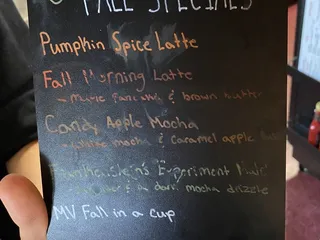 FALL SPECIALS
Pumpkin Spice Latte
Fall Morning Latte
- Maple Pancake & brown butter
Candy Apple Mocha
- White mocha & caramel apple
Experiment
& a dark mocha drizzle
MV Fall in a cup